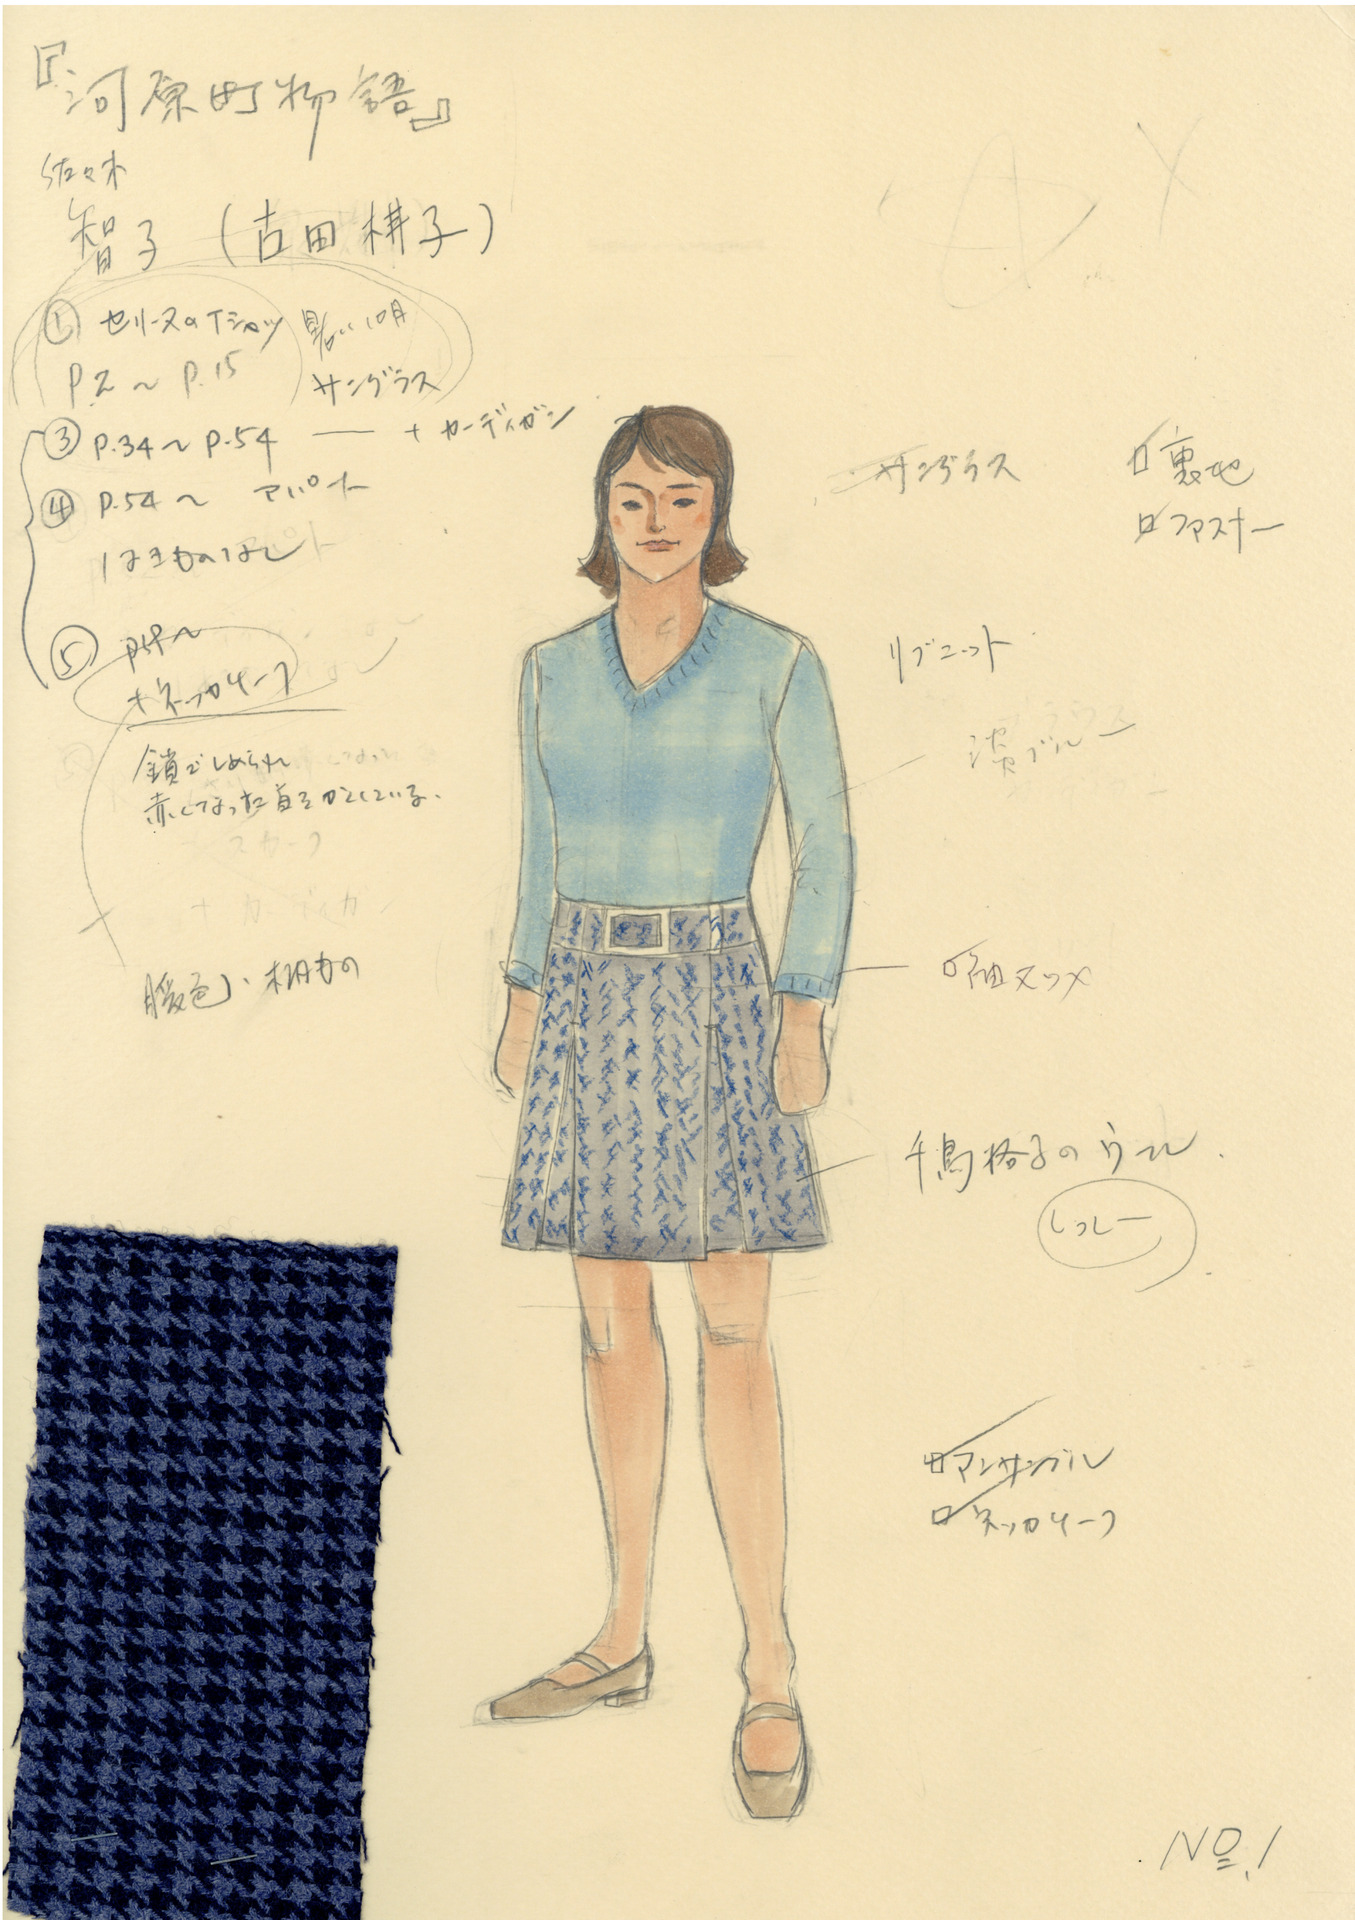 『河原町物語』
佐々木
智子（古田耕子）
① セリーヌのTシャツ
P.2〜P.15
サングラス
③ P.34〜P.54 ― +カーディガン
④ P.54〜 アパート
はきものなし
⑤
+ネッカチーフ
鎖でしめられ
赤くなった首をかくしている。
暖色、柄もの
サングラス
ロ裏地
ロファスナー
リブニット
淡ブルー
ロ袖ヌツメ
千鳥格子のウール
ロアンサンブル
ロネッカチーフ
No.1